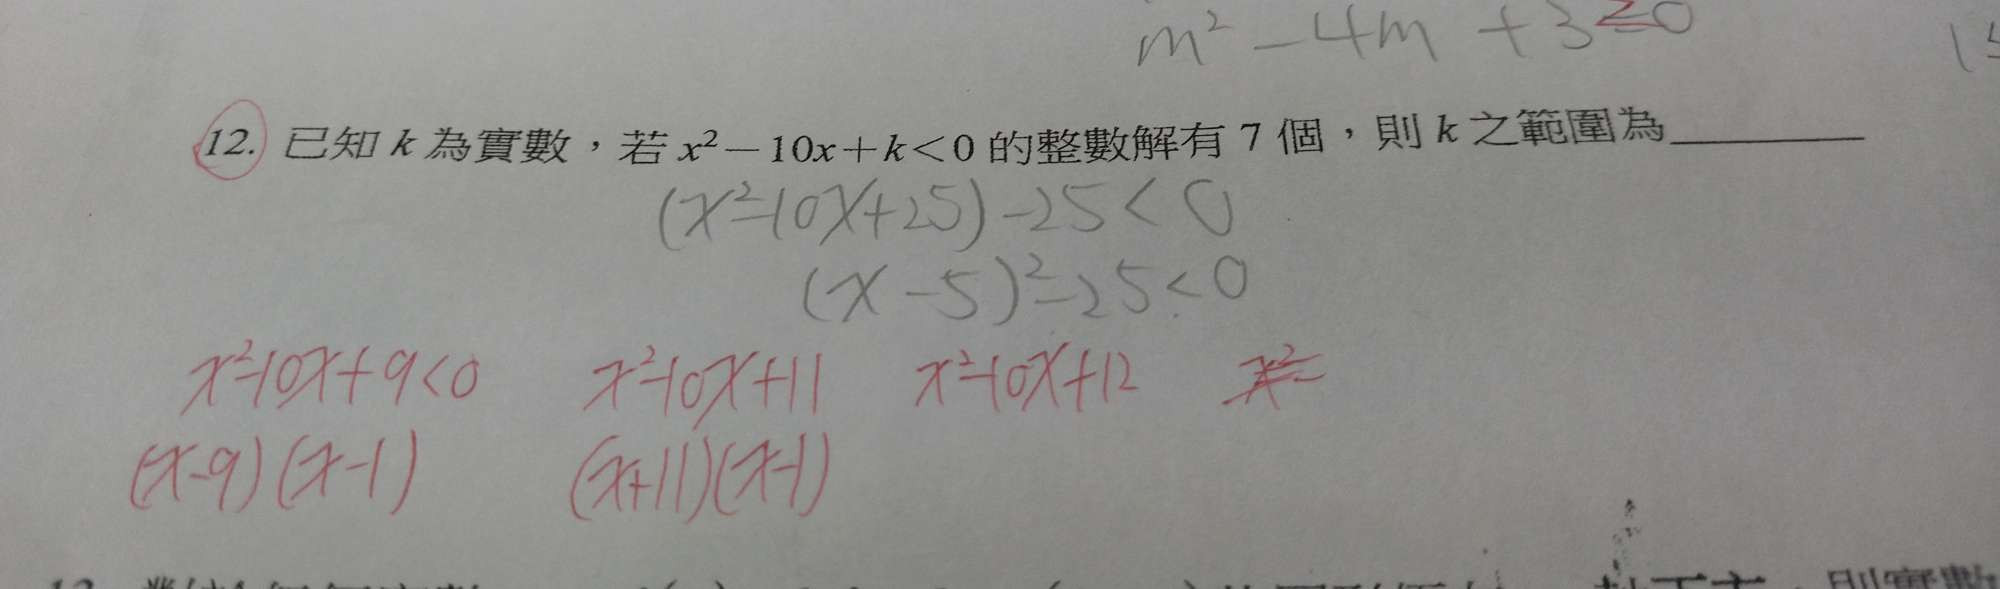 m² - 4m + 3 ≥ 0
12. 已知 k 為實數，若 x²－10x＋k＜0 的整數解有 7 個，則 k 之範圍為
(x²-10x+25)-25<0
(x-5)²-25<0
x²-10x+9<0 x²-10x+11 x²-10x+12 x²-
(x-9)(x-1) (x+11)(x-1)